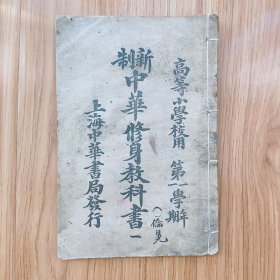 高等小學校用 第一學年
第一學期
新制中華修身教科書一
上海中華書局發行